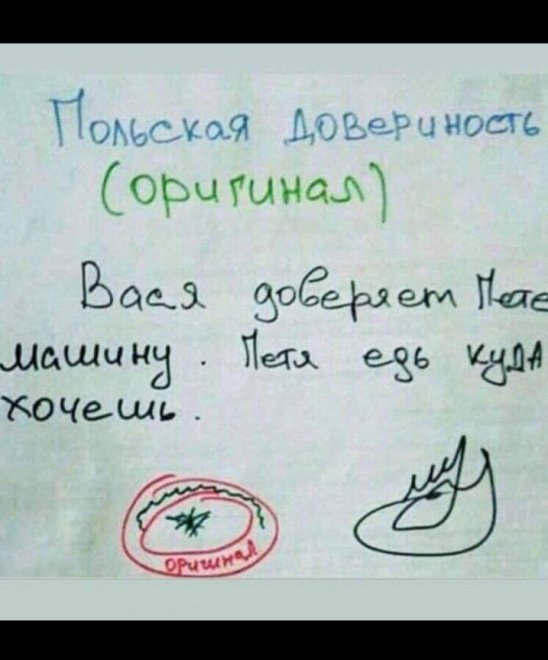 Польская довериность
(оригинал)
Вася доверяет Пете
машину. Петя едь куда
хочешь.
оригинал